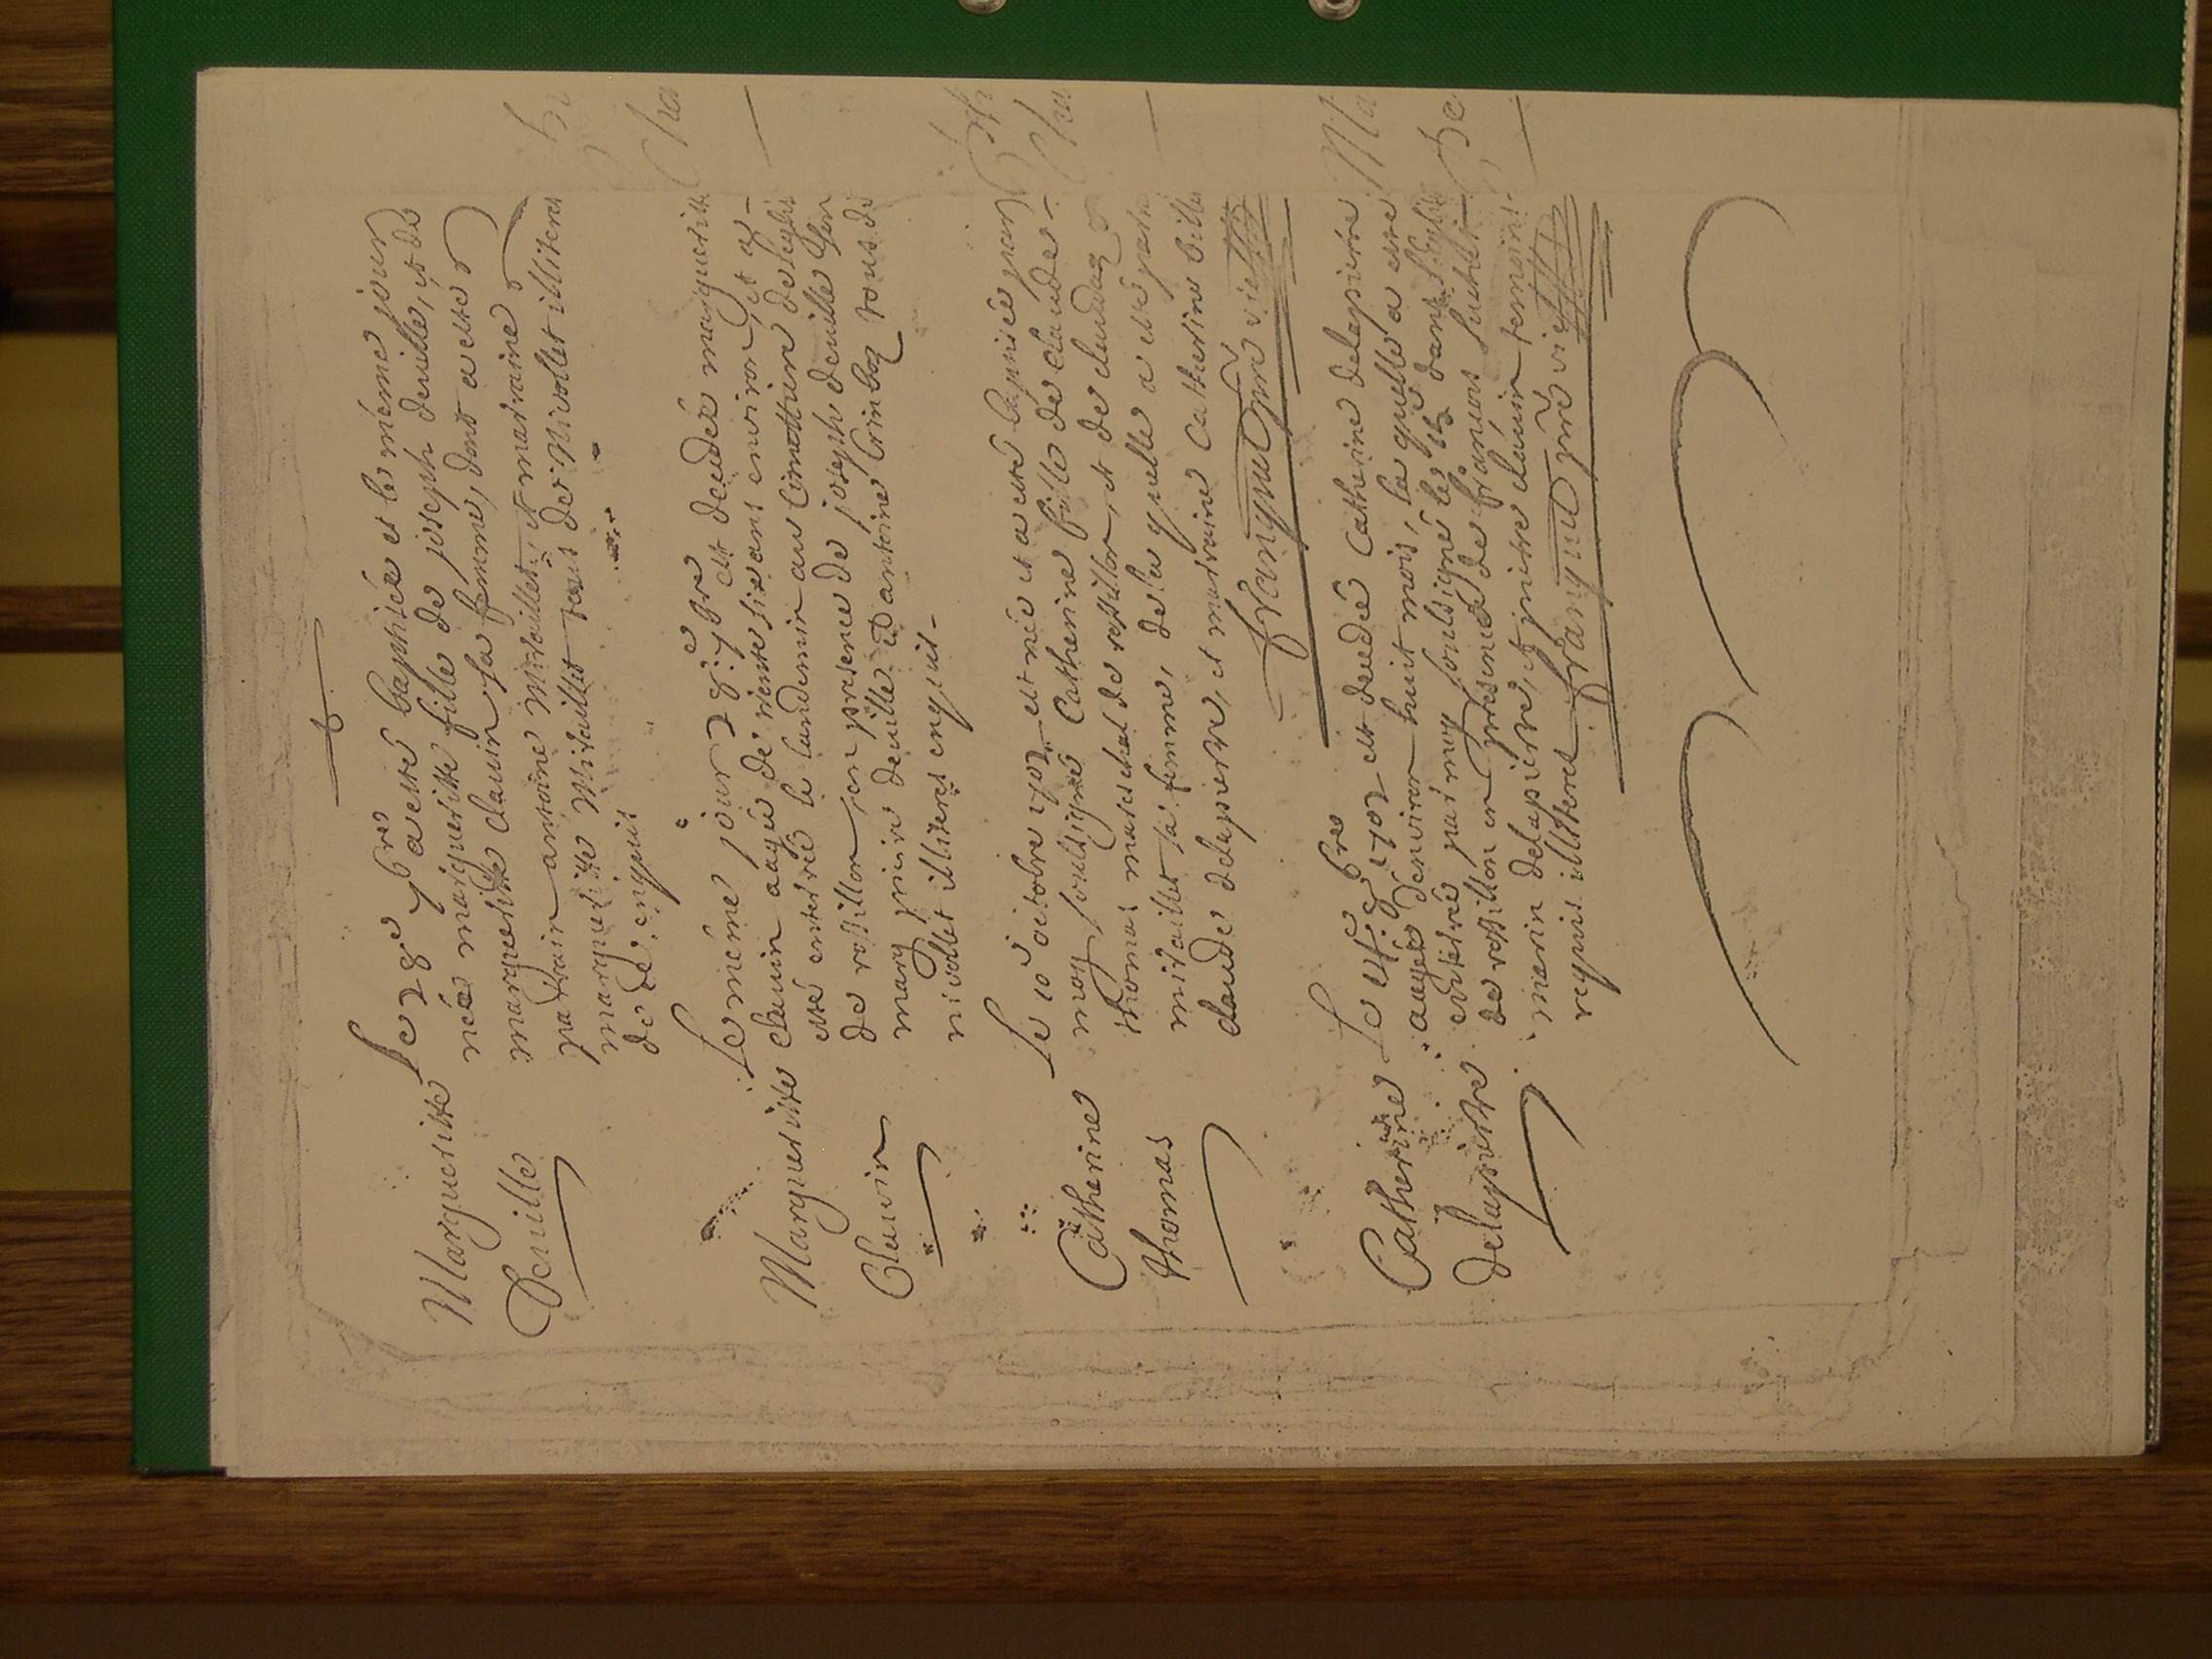 Margueritte
Deville
Le 28e 7bre a esté baptisée et le même jour
née margueritte fille de joseph deville, et de
marguerite clauin sa femme, dont a esté
parrain antoine Mitaillet, et marraine
marguerite Mitaillet tous de Nivollet illiteres
de ce enquis
Margueritte
Clauin
Le méme jour 28e 7bre est decedée marguerite
clauin aagée de trente six ans environ, et a
esté enterrée le landemin au Cimettiere de leglise
de rossillon, en presence de joseph deville son
mary pierre deville et antoine Brinboz tous de
nivollet illiteres enquis
Catherine
thomas
Le 10e octobre 1702 est née et a esté baptisée par
moy soussigné Catherine fille de claude
thomas mareschal de rossillon, et de claudaz
mitaillet sa femme, de la quelle a esté parr
claude delapierre, et marraine Catherine bille
franquet pre vic
Catherine
delapierre
Le 14e 8bre 1702 est decedée Catherine delapierre
aagée denviron huit mois, la quelle a esté
entérrée par moy soussigné le 15 dans leglise
de rossillon en presence de françois
merin delapierre, et pierre clauin temoins
requis illiteres franquet pre vic